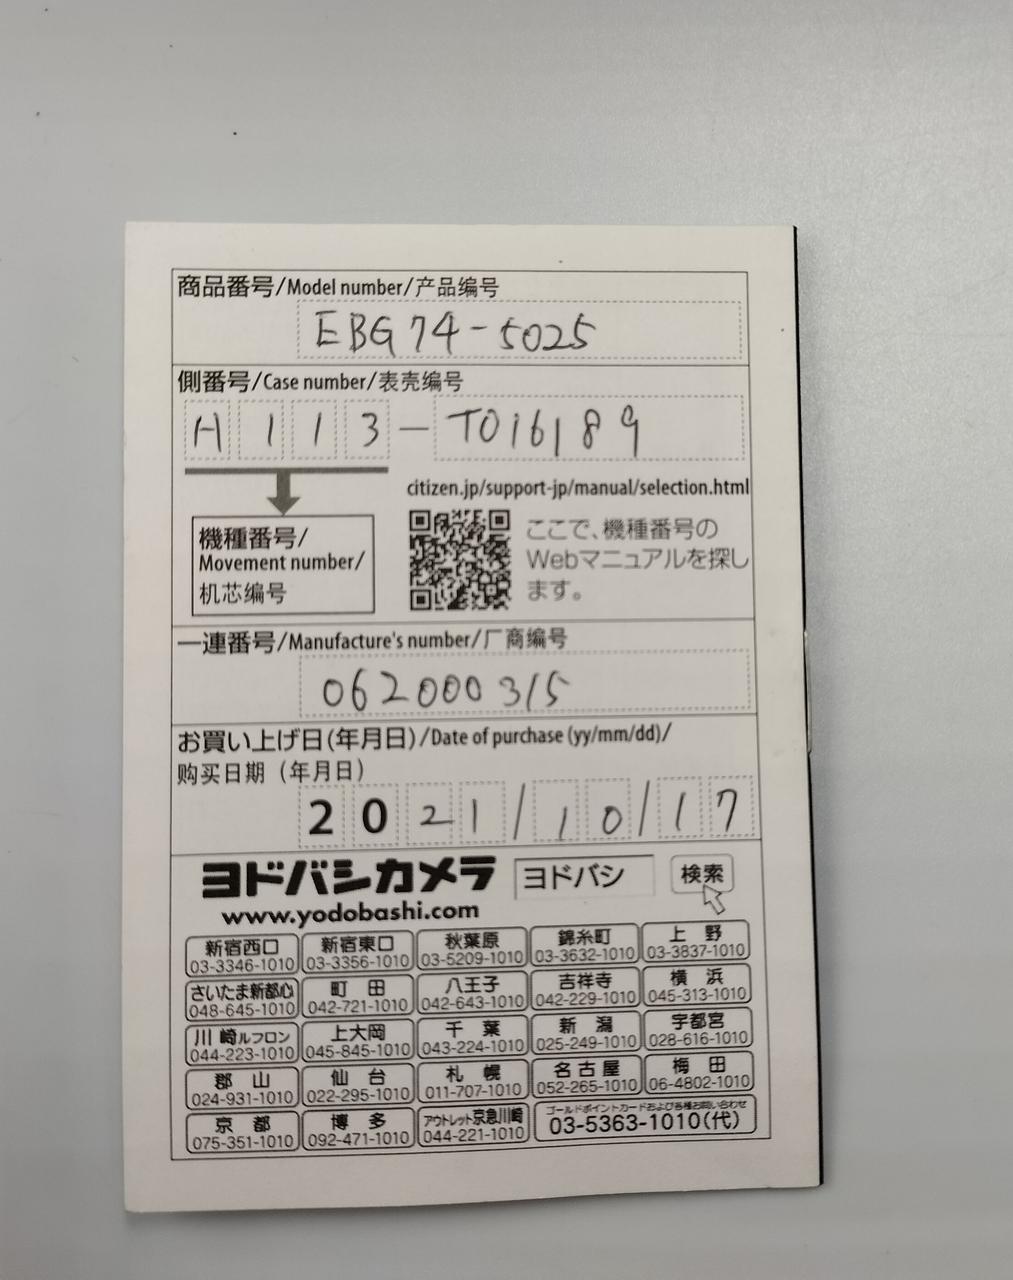 商品番号/Model number/产品编号
EBG74-5025
側番号/Case number/表壳编号
H113-T016189
citizen.jp/support-jp/manual/selection.html
機種番号/
Movement number/
机芯编号
ここで、機種番号の
Webマニュアルを探し
ます。
一連番号/Manufacture's number/厂商编号
062000315
お買い上げ日(年月日)/Date of purchase (yy/mm/dd)/
购买日期（年月日）
2021/10/17
ヨドバシカメラ ヨドバシ 検索
www.yodobashi.com
新宿西口 新宿東口 秋葉原 錦糸町 上野
03-3346-1010 03-3356-1010 03-5209-1010 03-3632-1010 03-3837-1010
さいたま新都心 町田 八王子 吉祥寺 横浜
048-645-1010 042-721-1010 042-643-1010 042-229-1010 045-313-1010
川崎ルフロン 上大岡 千葉 新潟 宇都宮
044-223-1010 045-845-1010 043-224-1010 025-249-1010 028-616-1010
郡山 仙台 札幌 名古屋 梅田
024-931-1010 022-295-1010 011-707-1010 052-265-1010 06-4802-1010
京都 博多 アウトレット京急川崎 ゴールドポイントカードおよび各種お問い合わせ
075-351-1010 092-471-1010 044-221-1010 03-5363-1010(代)